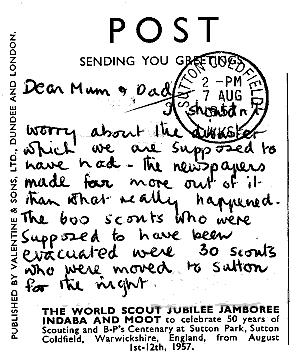 POST
SENDING YOU GREETINGS
SUTTON COLDFIELD
2 -PM
7 AUG
Dear Mum & Dad
I
worry about the disaster
which we are supposed to
have had - the newspapers
made far more out of it
than what really happened.
The 600 scouts who were
supposed to have been
evacuated were 30 scouts
who were moved to Sutton
for the night
THE WORLD SCOUT JUBILEE JAMBOREE
INDABA AND MOOT to celebrate 50 years of
Scouting and B-P's Centenary at Sutton Park, Sutton
Coldfield, Warwickshire, England, from August
1st-12th, 1957.
PUBLISHED BY VALENTINE & SONS, LTD., DUNDEE AND LONDON.